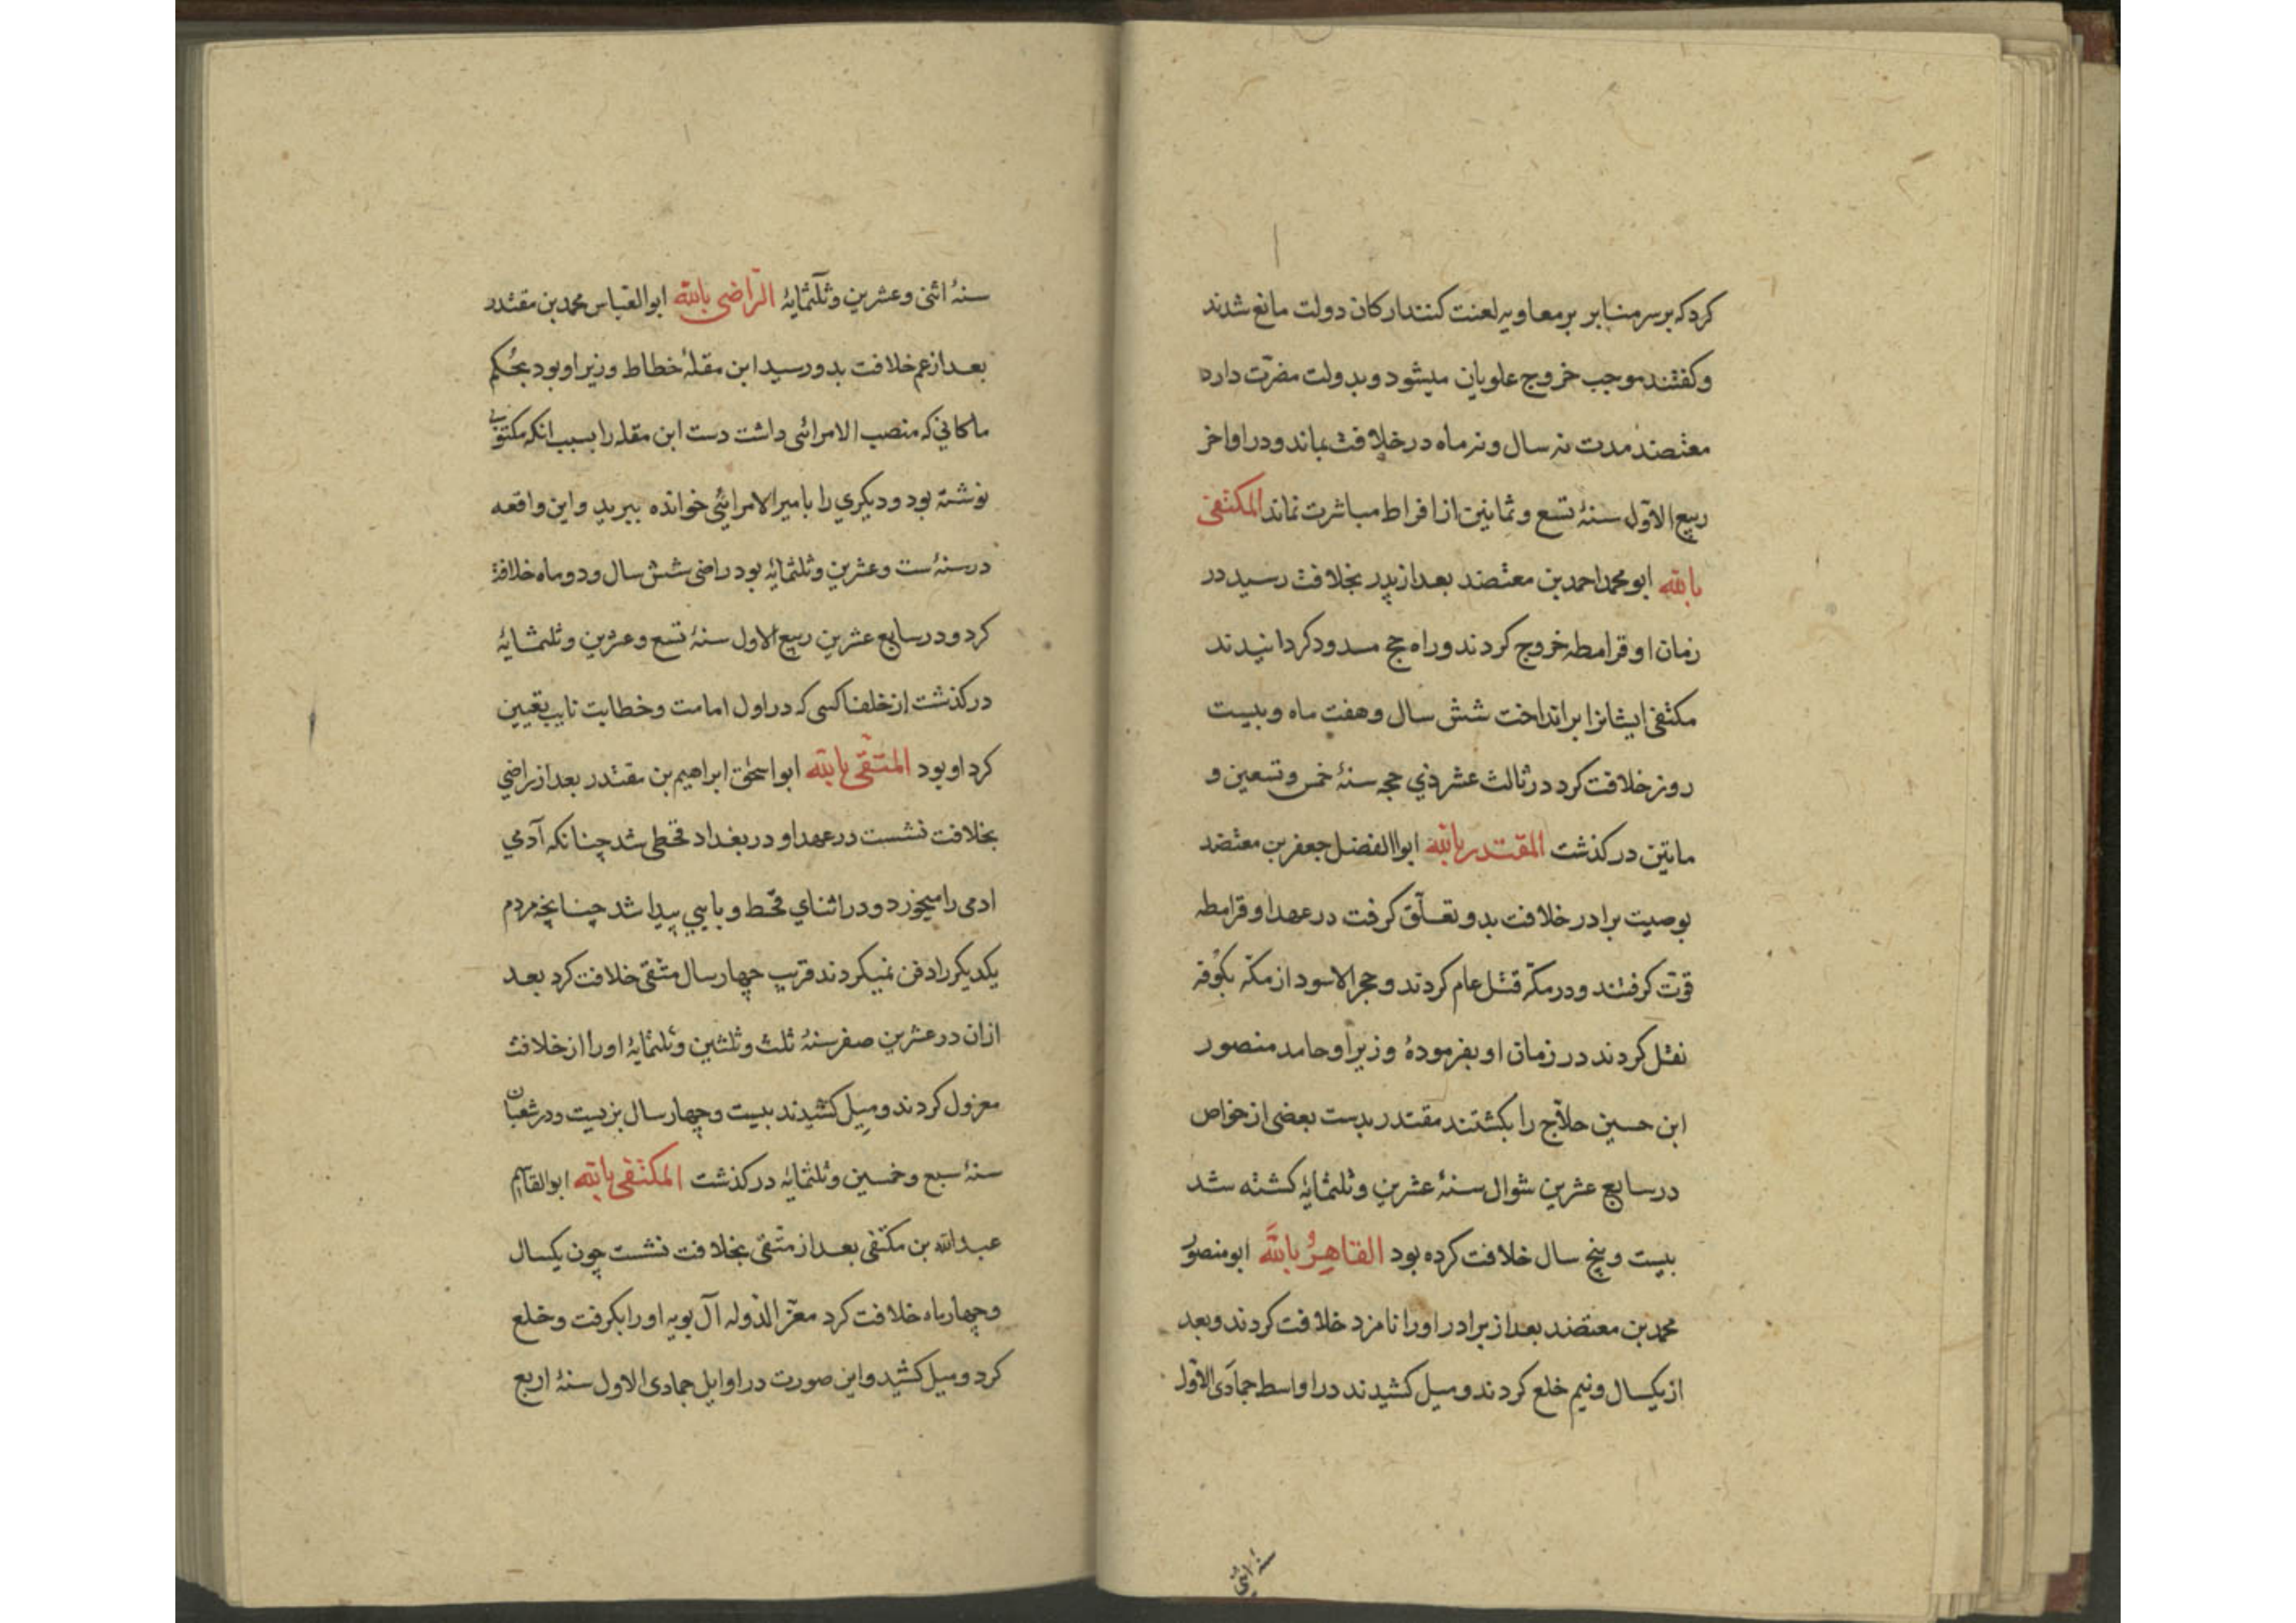 کرد که بر سر منابر بر معاویه لعنت کنند ارکان دولت مانع شدند
و کفتند موجب خروج علویان میشود و بدولت مضرّت دارد
معتضد مدت نه سال و نه ماه در خلافت بماند و در اواخر
ربیع الاوّل سنهٔ تسع و ثمانین از افراط مباشرت نماند المکتفی
بالله ابو محمد احمد بن معتضد بعد از پدر بخلافت رسید در
زمان او قرامطه خروج کردند و راه حج مسدود کردانیدند
مکتفی ایشانرا برانداخت شش سال و هفت ماه و بیست
روز خلافت کرد در ثالث عشر ذي حجه سنهٔ خمس و تسعین و
ماتین درکذشت المقتدر بالله ابوالفضل جعفر بن معتضد
بوصیت برادر خلافت بدو تعلّق کرفت در عهد او قرامطه
قوّت کرفتند و در مکّه قتل عام کردند و حجر الاسود از مکّه بکوفه
نقل کردند در زمان او بفرمودهٔ وزیر او حامد منصور
ابن حسین حلاّج را بکشتند مقتدر بدست بعضی از خواص
در سابع عشرین شوال سنهٔ عشرین و ثلثمایهٔ کشته شد
بیست و پنج سال خلافت کرده بود القاهرُ بالله ابو منصور
محمد بن معتضد بعد از برادر او را نامزد خلافت کردند و بعد
از یکسال و نیم خلع کردند و میل کشیدند در اواسط جمادَی الاوّل
سنهٔ اثنی
سنهٔ اثنی و عشرین و ثلثمایهٔ الرّاضی بالله ابو العباس محمد بن مقتدر
بعد از عم خلافت بدو رسید ابن مقلهٔ خطاط وزیر او بود بجُکم
ماکاني که منصب الامرائی داشت دست ابن مقله را بسبب انکه مکتوبی
نوشته بود و دیکري را بامیر الامرائی خوانده ببرید و این واقعه
در سنهٔ ست و عشرین و ثلثمایهٔ بود راضی شش سال و دو ماه خلافة
کرد و در سابع عشرین ربیع الاول سنهٔ تسع و عشرین و ثلثمایهٔ
درکذشت از خلفا کسی که در اول امامت و خطابت نایب تعیین
کرد او بود المتّقی بالله ابو اسحٰق ابراهیم بن مقتدر بعد از راضي
بخلافت نشست در عهد او در بغداد قحطی شد چنانکه آدمي
ادمی را میخورد و در اثناي قحط وبایي پیدا شد چنانچه مردم
یکدیکر را دفن نمیکردند قریب چهار سال متقی خلافت کرد بعد
ازان در عشرین صفر سنهٔ ثلث و ثلثین و ثلثمایهٔ او را از خلافت
معزول کردند و میل کشیدند بیست و چهار سال بزیست و در شعبان
سنهٔ سبع و خمسین و ثلثمایهٔ درکذشت المکتفی بالله ابو القاسم
عبدالله بن مکتفی بعد از متقی بخلافت نشست چون یکسال
و چهار ماه خلافت کرد معزّ الدوله آل بویه او را بکرفت و خلع
کرد و میل کشید و این صورت در اوایل جمادی الاول سنهٔ اربع